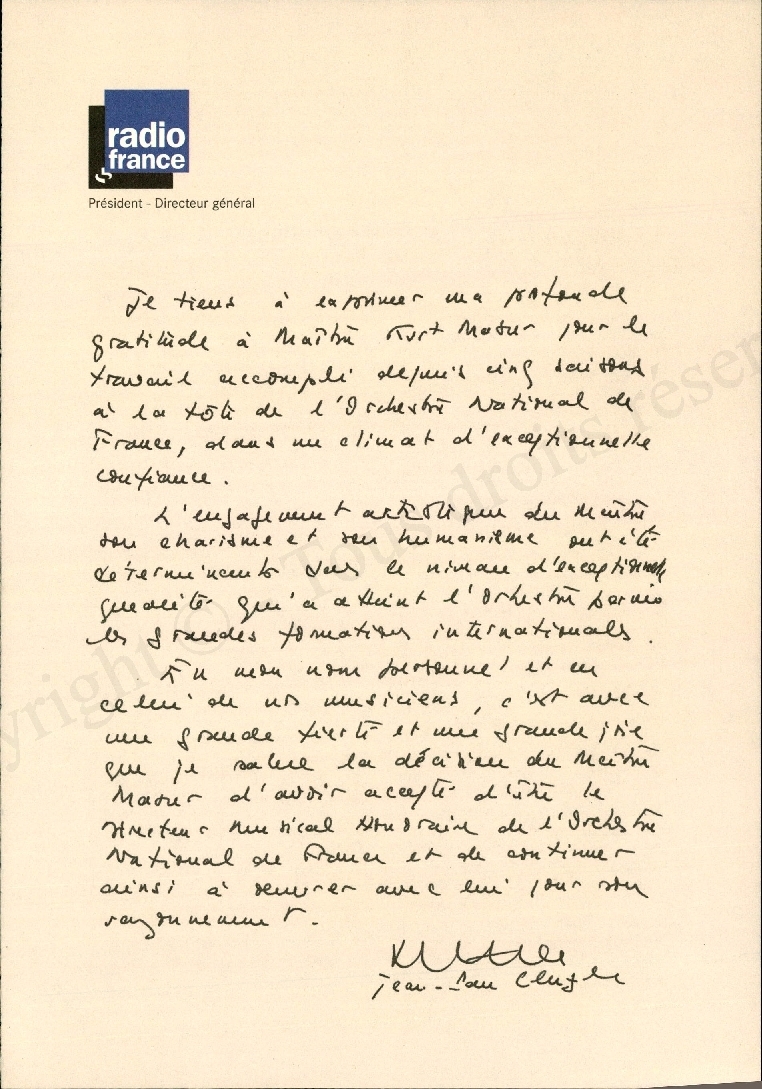 radio
france
Président - Directeur général
Je tiens à exprimer ma profonde
gratitude à Maître Kurt Masur pour le
travail accompli depuis cinq saisons
à la tête de l'Orchestre National de
France, dans un climat d'exceptionnelle
confiance.
L'engagement artistique du Maître
son charisme et son humanisme ont été
déterminants dans le niveau d'exceptionnelle
qualité qu'a atteint l'Orchestre parmi
les grandes formations internationales.
En mon nom personnel et en
celui de nos musiciens, c'est avec
une grande fierté et une grande joie
que je salue la décision du Maître
Masur d'avoir accepté d'être le
Directeur Musical Honoraire de l'Orchestre
National de France et de continuer
ainsi à oeuvrer avec lui pour son
rayonnement.
Jean-Paul Cluzel
yright © - Tous droits réser